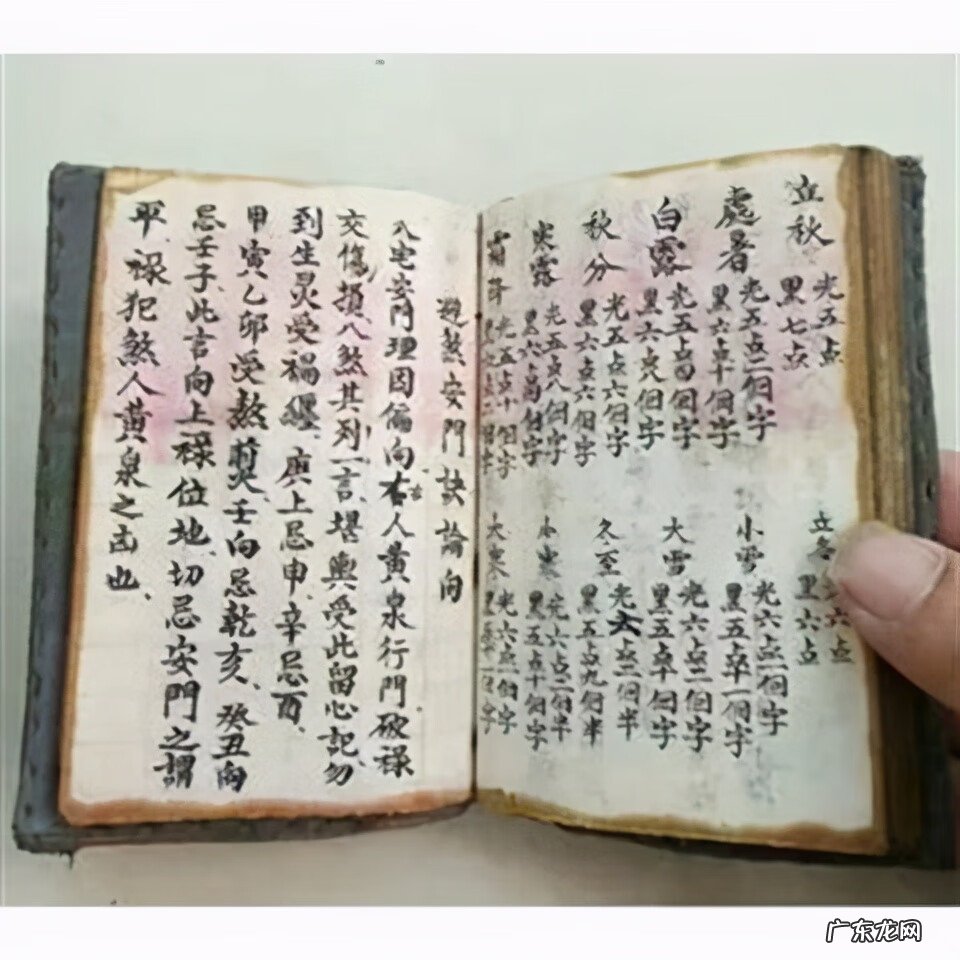 立秋 光五点
黑七点
處暑 光五点二個字
黑六点十個字
白露 光五点四個字
黑六点 個字
秋分 光五点六個字
黑六点六個字
寒露 光五点八個字
黑六点 個字
霜降 光五点十個字
黑 二個字
立冬 六点
黑六点
小雪 光六点一個字
黑五点 一個字
大雪 光六点二個字
黑五 個字
冬至 光六点二個半
黑五点九個半
小寒 光六点二個半
黑五点十個字
大寒 光六点一個字
黑 一個字
避煞安門訣論向
八宅安門理因偏向右人黃泉行門破祿
交傷損八煞其列一言堪輿受此留心記勿
到生灵受禍 庚上忌申、辛忌酉、
甲寅乙卯受煞 壬向忌乾亥、癸丑向
忌壬子、此言向上祿位地、切忌安門之謂
平、祿犯煞人黃泉之凶也、
广东龙网